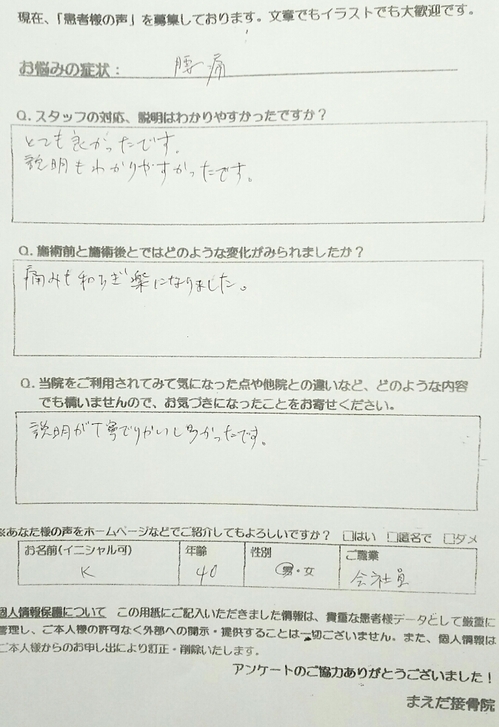 現在、「患者様の声」を募集しております。文章でもイラストでも大歓迎です。
お悩みの症状： 腰痛
Q. スタッフの対応、説明はわかりやすかったですか？
とても良かったです。
説明もわかりやすかったです。
Q. 施術前と施術後とではどのような変化がみられましたか？
痛みも和らぎ楽になりました。
Q. 当院をご利用されてみて気になった点や他院との違いなど、どのような内容
でも構いませんので、お気づきになったことをお寄せください。
説明が丁寧でりかいしやすかったです。
※あなた様の声をホームページなどでご紹介してもよろしいですか？ □はい □匿名で □ダメ
お名前(イニシャル可) 年齢 性別 ご職業
K 40 男・女 会社員
個人情報保護について この用紙にご記入いただきました情報は、貴重な患者様データとして厳重に
管理し、ご本人様の許可なく外部への開示・提供することは一切ございません。また、個人情報は
ご本人様からのお申し出により訂正・削除いたします。
アンケートのご協力ありがとうございました！
まえだ接骨院